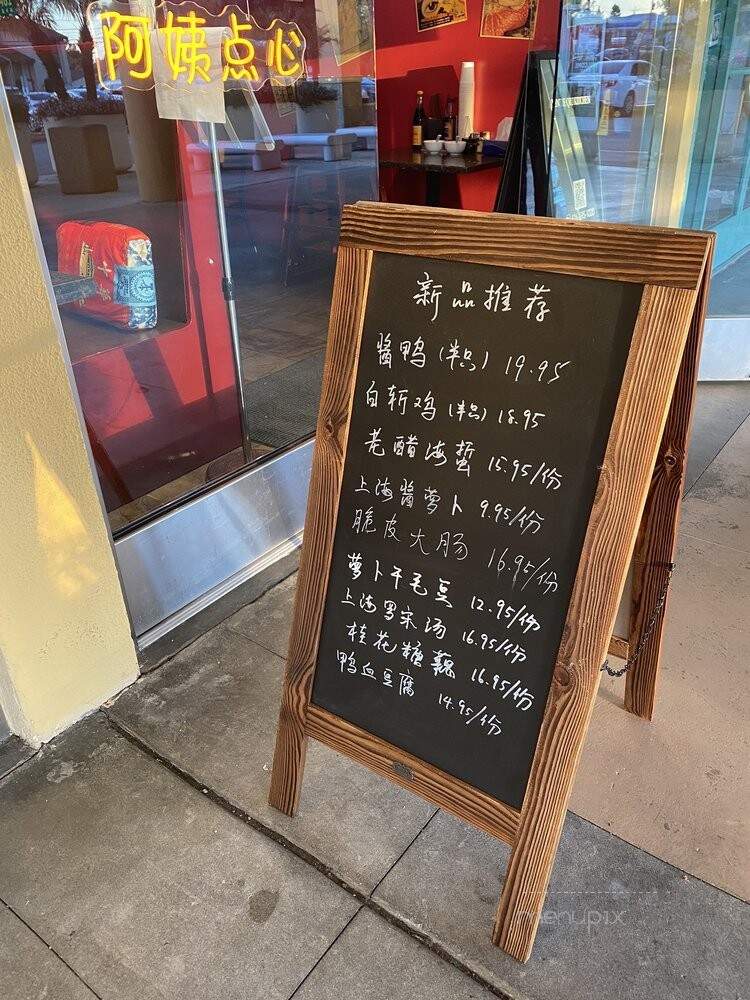 阿姨点心
新品推荐
酱鸭（半只） 19.95
白斩鸡（半只） 18.95
老醋海蜇 15.95/份
上海酱萝卜 9.95/份
脆皮大肠 16.95/份
萝卜干毛豆 12.95/份
上海罗宋汤 16.95/份
桂花糖藕 16.95/份
鸭血豆腐 14.95/份
menupix